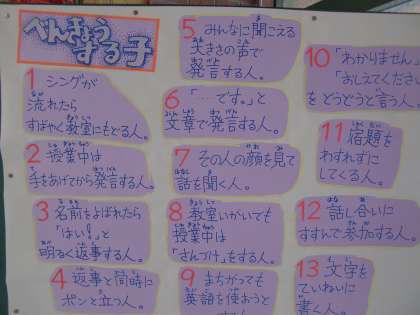 べんきょう
する子
1 シングが
流れたら
すばやく教室にもどる人。
2 授業中は
手をあげてから発言する人。
3 名前をよばれたら
「はい!」と
明るく返事する人。
4 返事と同時に
ポンと立つ人。
5 みんなに聞こえる
大きさの声で
発言する人。
6 「…です。」と
文章で発言する人。
7 その人の顔を見て
話を聞く人。
8 教室いがいでも
授業中は
「さんづけ」をする人。
9 まちがっても
英語を使おうと
10 「わかりません」
「おしえてくださ
をどうどうと言う人
11 宿題を
わすれずに
してくる人。
12 話し合いに
すすんで参加する人。
13 文字を
ていねいに
書く人。